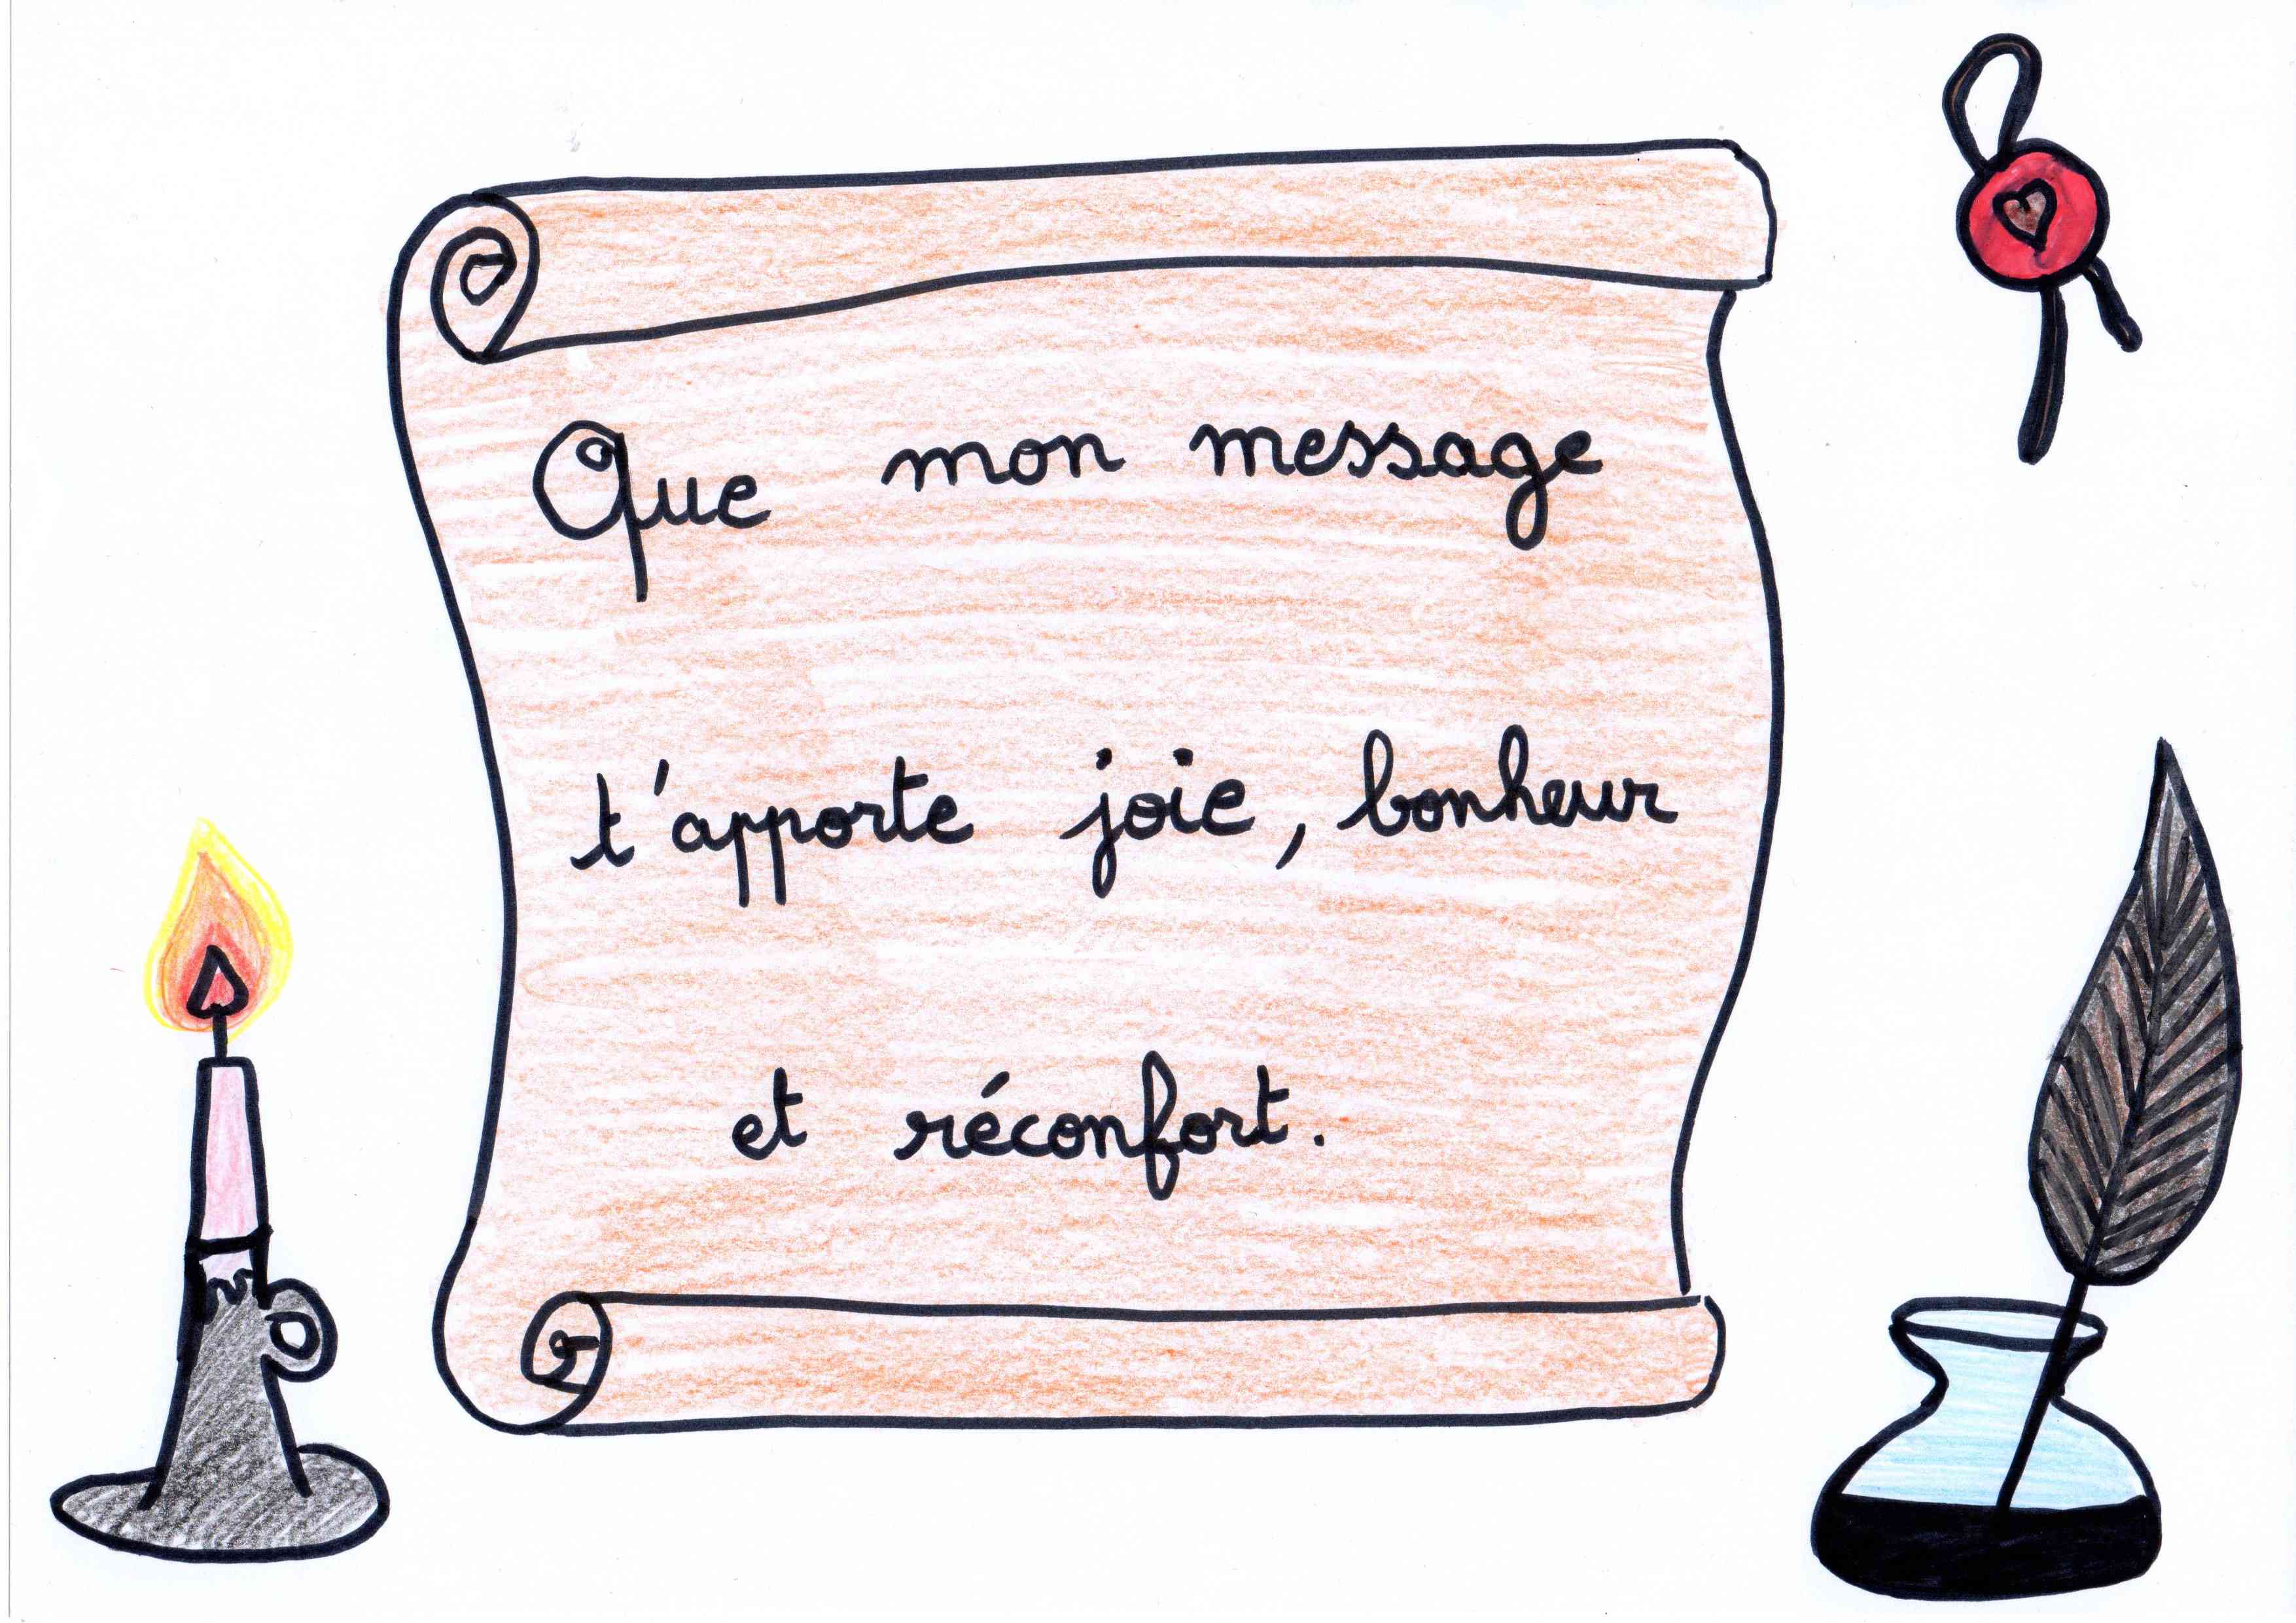 Que mon message
t'apporte joie, bonheur
et réconfort.